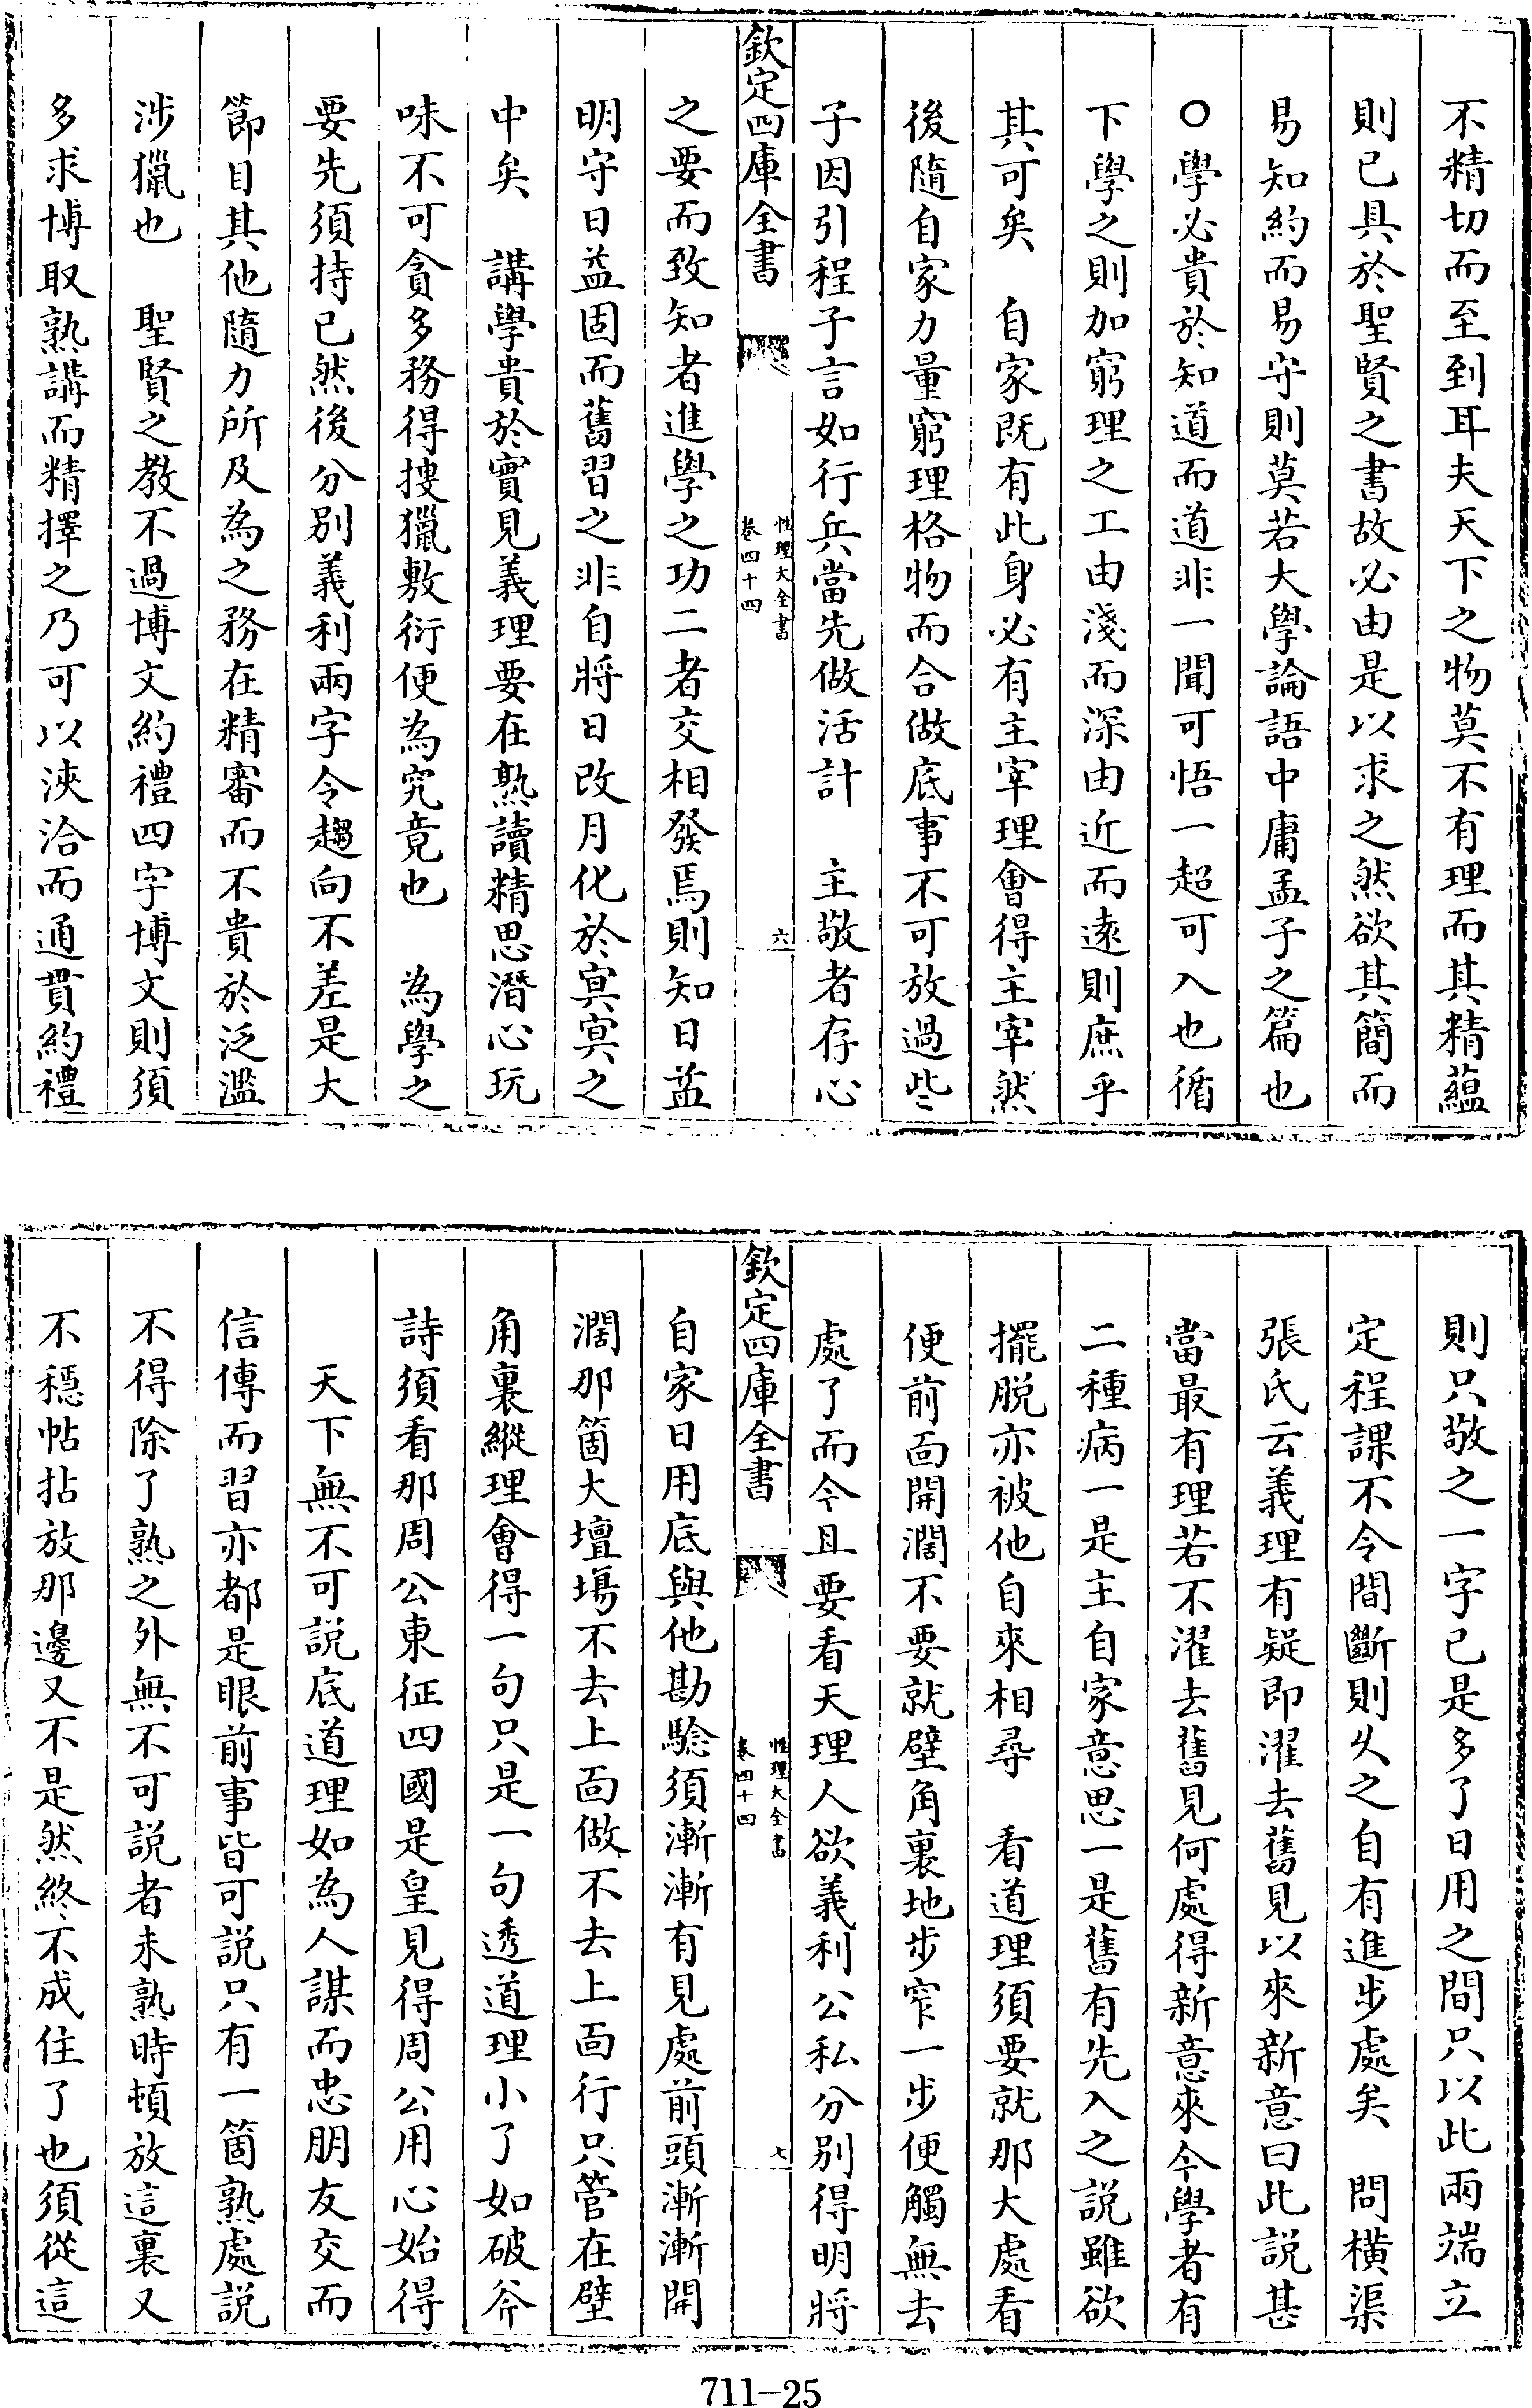 不精切而至到耳夫天下之物莫不有理而其精蘊
則已具於聖賢之書故必由是以求之然欲其簡而
易知約而易守則莫若大學論語中庸孟子之篇也
○學必貴於知道而道非一聞可悟一超可入也循
下學之則加窮理之工由淺而深由近而遠則庶乎
其可矣　自家既有此身必有主宰理會得主宰然
後隨自家力量窮理格物而合做底事不可放過些
子因引程子言如行兵當先做活計　主敬者存心
欽定四庫全書
性理大全書
卷四十四
六
之要而致知者進學之功二者交相發焉則知日益
明守日益固而舊習之非自將日改月化於冥冥之
中矣　講學貴於實見義理要在熟讀精思潛心玩
味不可貪多務得搜獵敷衍便為究竟也　為學之
要先須持已然後分别義利兩字令趨向不差是大
節目其他隨力所及為之務在精審而不貴於泛濫
涉獵也　聖賢之教不過博文約禮四字博文則須
多求博取熟講而精擇之乃可以浹洽而通貫約禮
則只敬之一字已是多了日用之間只以此兩端立
定程課不令間斷則久之自有進步處矣　問橫渠
張氏云義理有疑即濯去舊見以來新意曰此説甚
當最有理若不濯去舊見何處得新意來今學者有
二種病一是主自家意思一是舊有先入之説雖欲
擺脱亦被他自來相尋　看道理須要就那大處看
便前面開濶不要就壁角裏地步窄一步便觸無去
處了而今且要看天理人欲義利公私分别得明將
欽定四庫全書
性理大全書
卷四十四
七
自家日用底與他勘驗須漸漸有見處前頭漸漸開
濶那箇大壇場不去上面做不去上面行只管在壁
角裏縱理會得一句只是一句透道理小了如破斧
詩須看那周公東征四國是皇見得周公用心始得
天下無不可説底道理如為人謀而忠朋友交而
信傳而習亦都是眼前事皆可説只有一箇熟處説
不得除了熟之外無不可説者未熟時頓放這裏又
不穩帖拈放那邊又不是然終不成住了也須從這
711-25